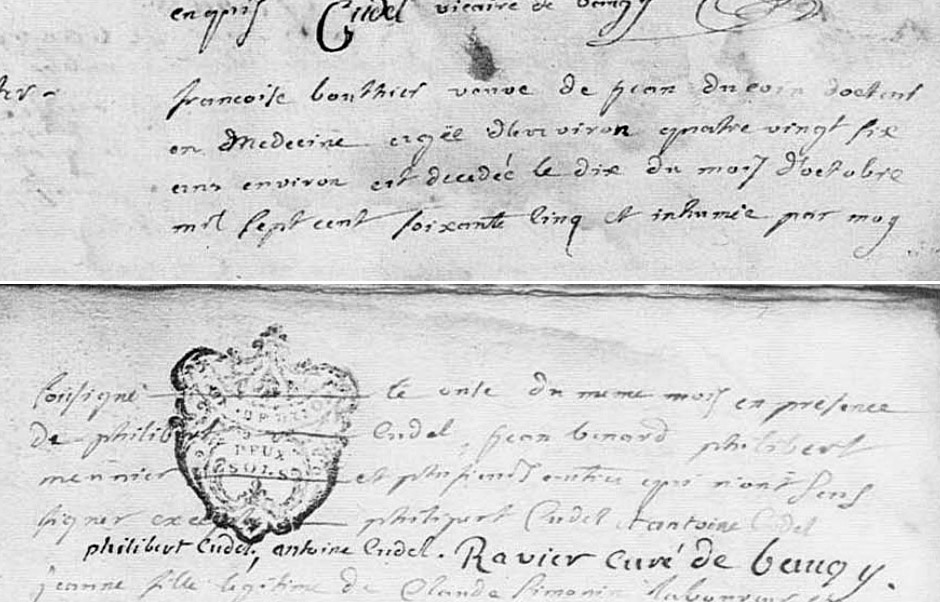 enquis Cudel vicaire de baugy
francoise bouthier veuve de jean ducoin docteur
en Medecine agée d'environ quatre vingt six
ans environ est decedée le dix du mois d'octobre
mil sept cent soixante cinq et inhumée par moy
sousigné le onse du meme mois en presence
de philibert Cudel, jean benard philibert
meunier et plusieurs autres qui n'ont sceus
DEUX
SOLS
signer excepté philipert Cudel et antoine Cudel
philibert Cudel, antoine Cudel. Ravier curé de baugy.
jeanne fille legitime de Claude Simonin laboureur et